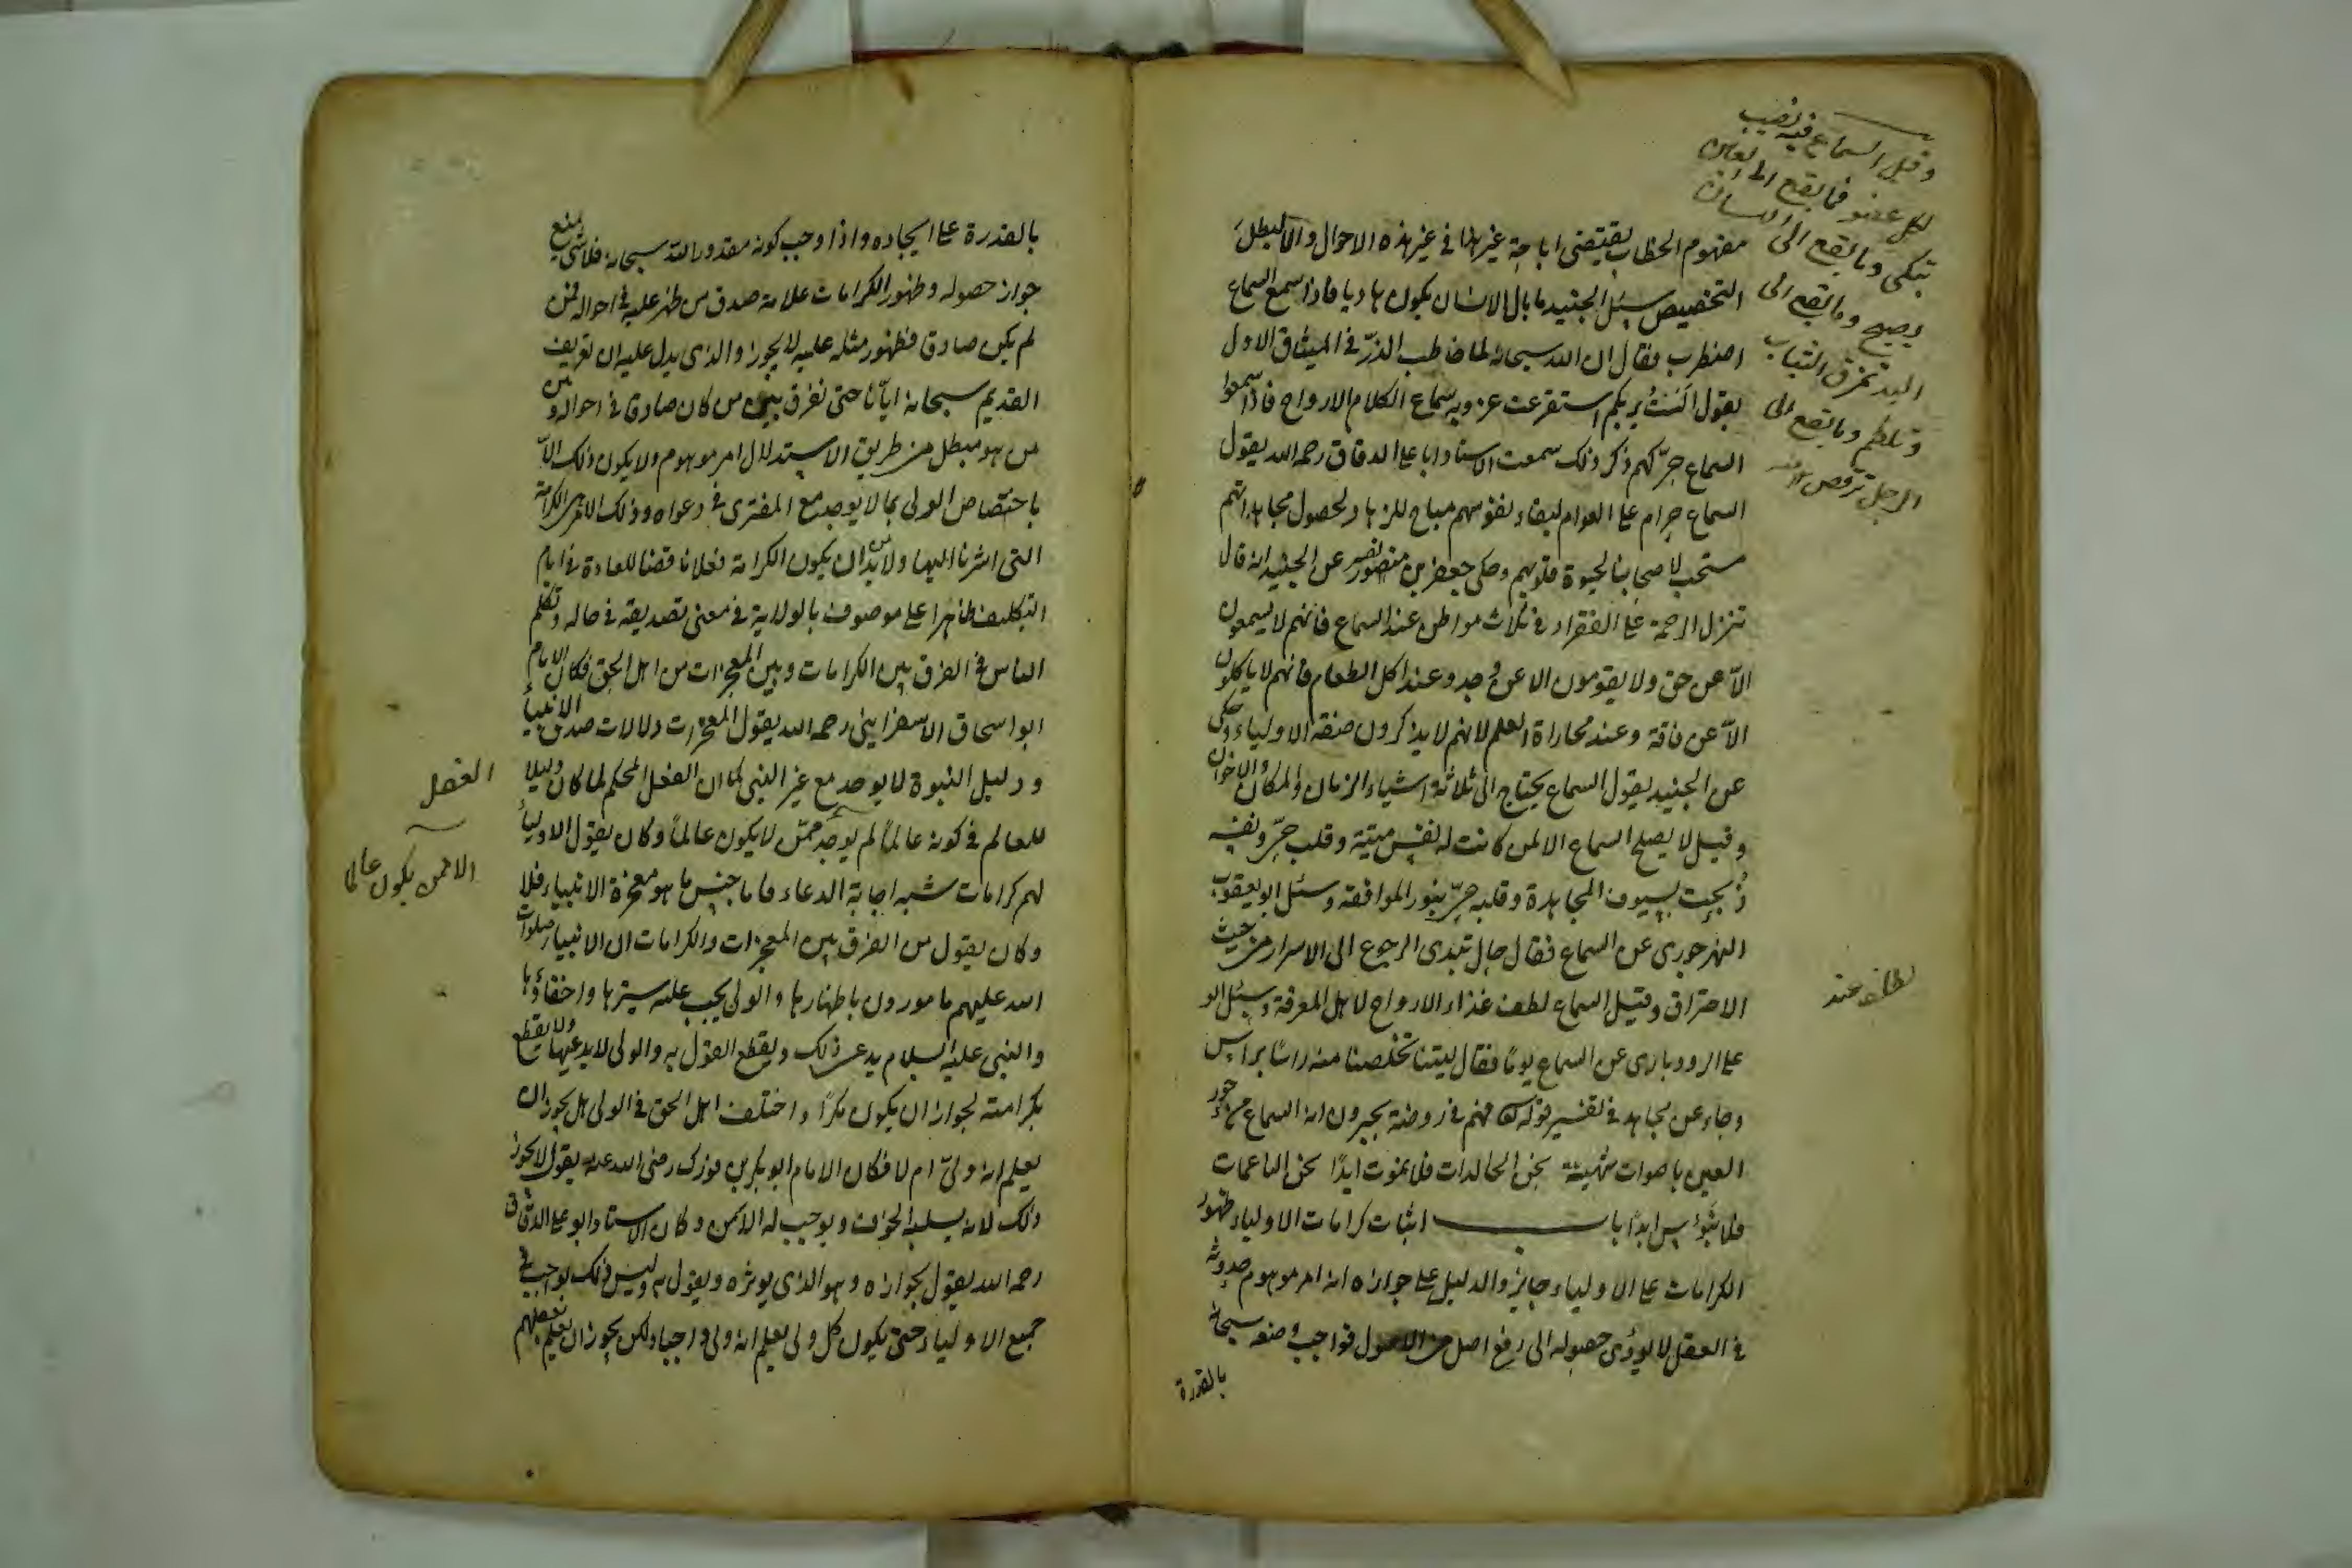 وقيل السماع فيه نصيب
لكل عضو فما يقع الى العين
تبكى وما يقع الى اللسان
يصيح وما يقع الى
اليد تمزق الثياب
وتلطم وما يقع الى
الرجل ترقص
مفهوم الخطاب يقتضى اباحة غير هذا فى غير هذه الاحوال والا لبطل
التخصيص سئل الجنيد ما بال الانسان يكون هاديا فاذا سمع السماع
اضطرب فقال ان الله سبحانه لما خاطب الذرّ فى الميثاق الاول
بقول الَستُ بربكم استفرعت عذوبة سماع الكلام الارواح فاذا سمعوا
السماع حرّكهم ذكر ذلك سمعت الاستاد ابا على الدقاق رحمه الله يقول
السماع حرام على العوام لبقاء نفوسهم مباح للزهاد لحصول مجاهداتهم
مستحب لاصحابنا لحيوة قلوبهم وحكى جعفر بن نصير عن الجنيد انه قال
تنزل الرحمة على الفقراء فى ثلاث مواطن عند السماع فانهم لا يسمعون
الاّ عن حق ولا يقومون الا عن وجد وعند اكل الطعام فانهم لا ياكلون
الاّ عن فاقة وعند محاراة العلم لانهم لا يذكرون صفة الاولياء وحكى
عن الجنيد يقول السماع يحتاج الى ثلاثة اشياء الزمان والمكان والاخوان
وقيل لا يصلح السماع الا لمن كانت له نفس ميتة وقلب حىّ ونفسه
ذُبحِت بسيوف المجاهدة وقلبه حىّ بنور الموافقة وسئل ابو يعقوب
النهرجورى عن السماع فقال حال تبدى الرجوع الى الاسرار من حيث
الاحتراق وقيل السماع لطف غذاء الارواح لاهل المعرفة وسئل ابو
لطايف عند
على الرودبارى عن السماع يومًا فقال ليتنا تخلصنا منه راسًا براس
وجاء عن مجاهد فى تفسير قوله فهم فى روضة يحبرون انه السماع من حور
العين باصوات شهيّة نحن الخالدات فلا نموت ابدًا نحن الناعمات
فلا نبؤس ابدًا باب اثبات كرامات الاولياء ظهور
الكرامات على الاولياء جايز والدليل على جوازه انه امر موهوم حدوثه
فى العقل لا يؤدى حصوله الى رفع اصل من الاصول فواجب وصفه سبحانه
بالقدرة
بالقدرة على ايجاده واذا وجب كونه مقدورا لله سبحانه فلا شئ يمنع
جواز حصوله وظهور الكرامات علامة صدق من ظهر عليه فى احواله فمن
لم يكن صادقا فظهور مثله عليه لا يجوز والذى يدل عليه ان تعريف
القديم سبحانه ايّانا حتى نفرق بين من كان صادقا فى احواله وبين
من هو مبطل من طريق الاستدلال امر موهوم ولا يكون ذلك الاّ
باختصاص الولى بما لا يوجد مع المفترى فى دعواه وذلك الامر هى الكرامة
التى اشرنا اليها ولا بدّ ان يكون الكرامة فعلا ناقضا للعادة فى ايام
التكليف ظاهرا على موصوف بالولاية فى معنى تصديقه فى حاله وتكلم
الناس فى الفرق بين الكرامات وبين المعجزات من اهل الحق فكان الامام
ابو اسحاق الاسفراينى رحمه الله يقول المعجزات دلالات صدق الانبياء
ودليل النبوة لا يوجد مع غير النبى كما ان الفعل المحكم لما كان دليلا
العقل
للعالم فى كونه عالمًا لم يوجد ممّن لا يكون عالمًا وكان يقول الاولياء
الا ممن يكون عالما
لهم كرامات شبه اجابة الدعاء فاما جنس ما هو معجزة الانبياء فلا
وكان يقول من الفرق بين المعجزات والكرامات ان الانبياء صلوات
الله عليهم مامورون باظهارها والولى يجب عليه سترها واخفاؤها
والنبى عليه السلام يدعى ذلك ويقطع القول به والولى لا يدعيها ولا يقطع
بكرامته لجواز ان يكون مكرًا واختلف اهل الحق فى الولى هل يجوز ان
يعلم انه ولىّ ام لا فكان الامام ابو بكر بن فورك رضى الله عنه يقول لا يجوز
ذلك لانه يسلبه الخوف ويوجب له الامن وكان الاستاد ابو على الدقاق
رحمه الله يقول بجوازه وهو الذى يوثره ويقول به وليس ذلك بواجب فى
جميع الاولياء حتى يكون كل ولى يعلم انه ولى واجبا ولكن يجوز ان يعلم بعضهم